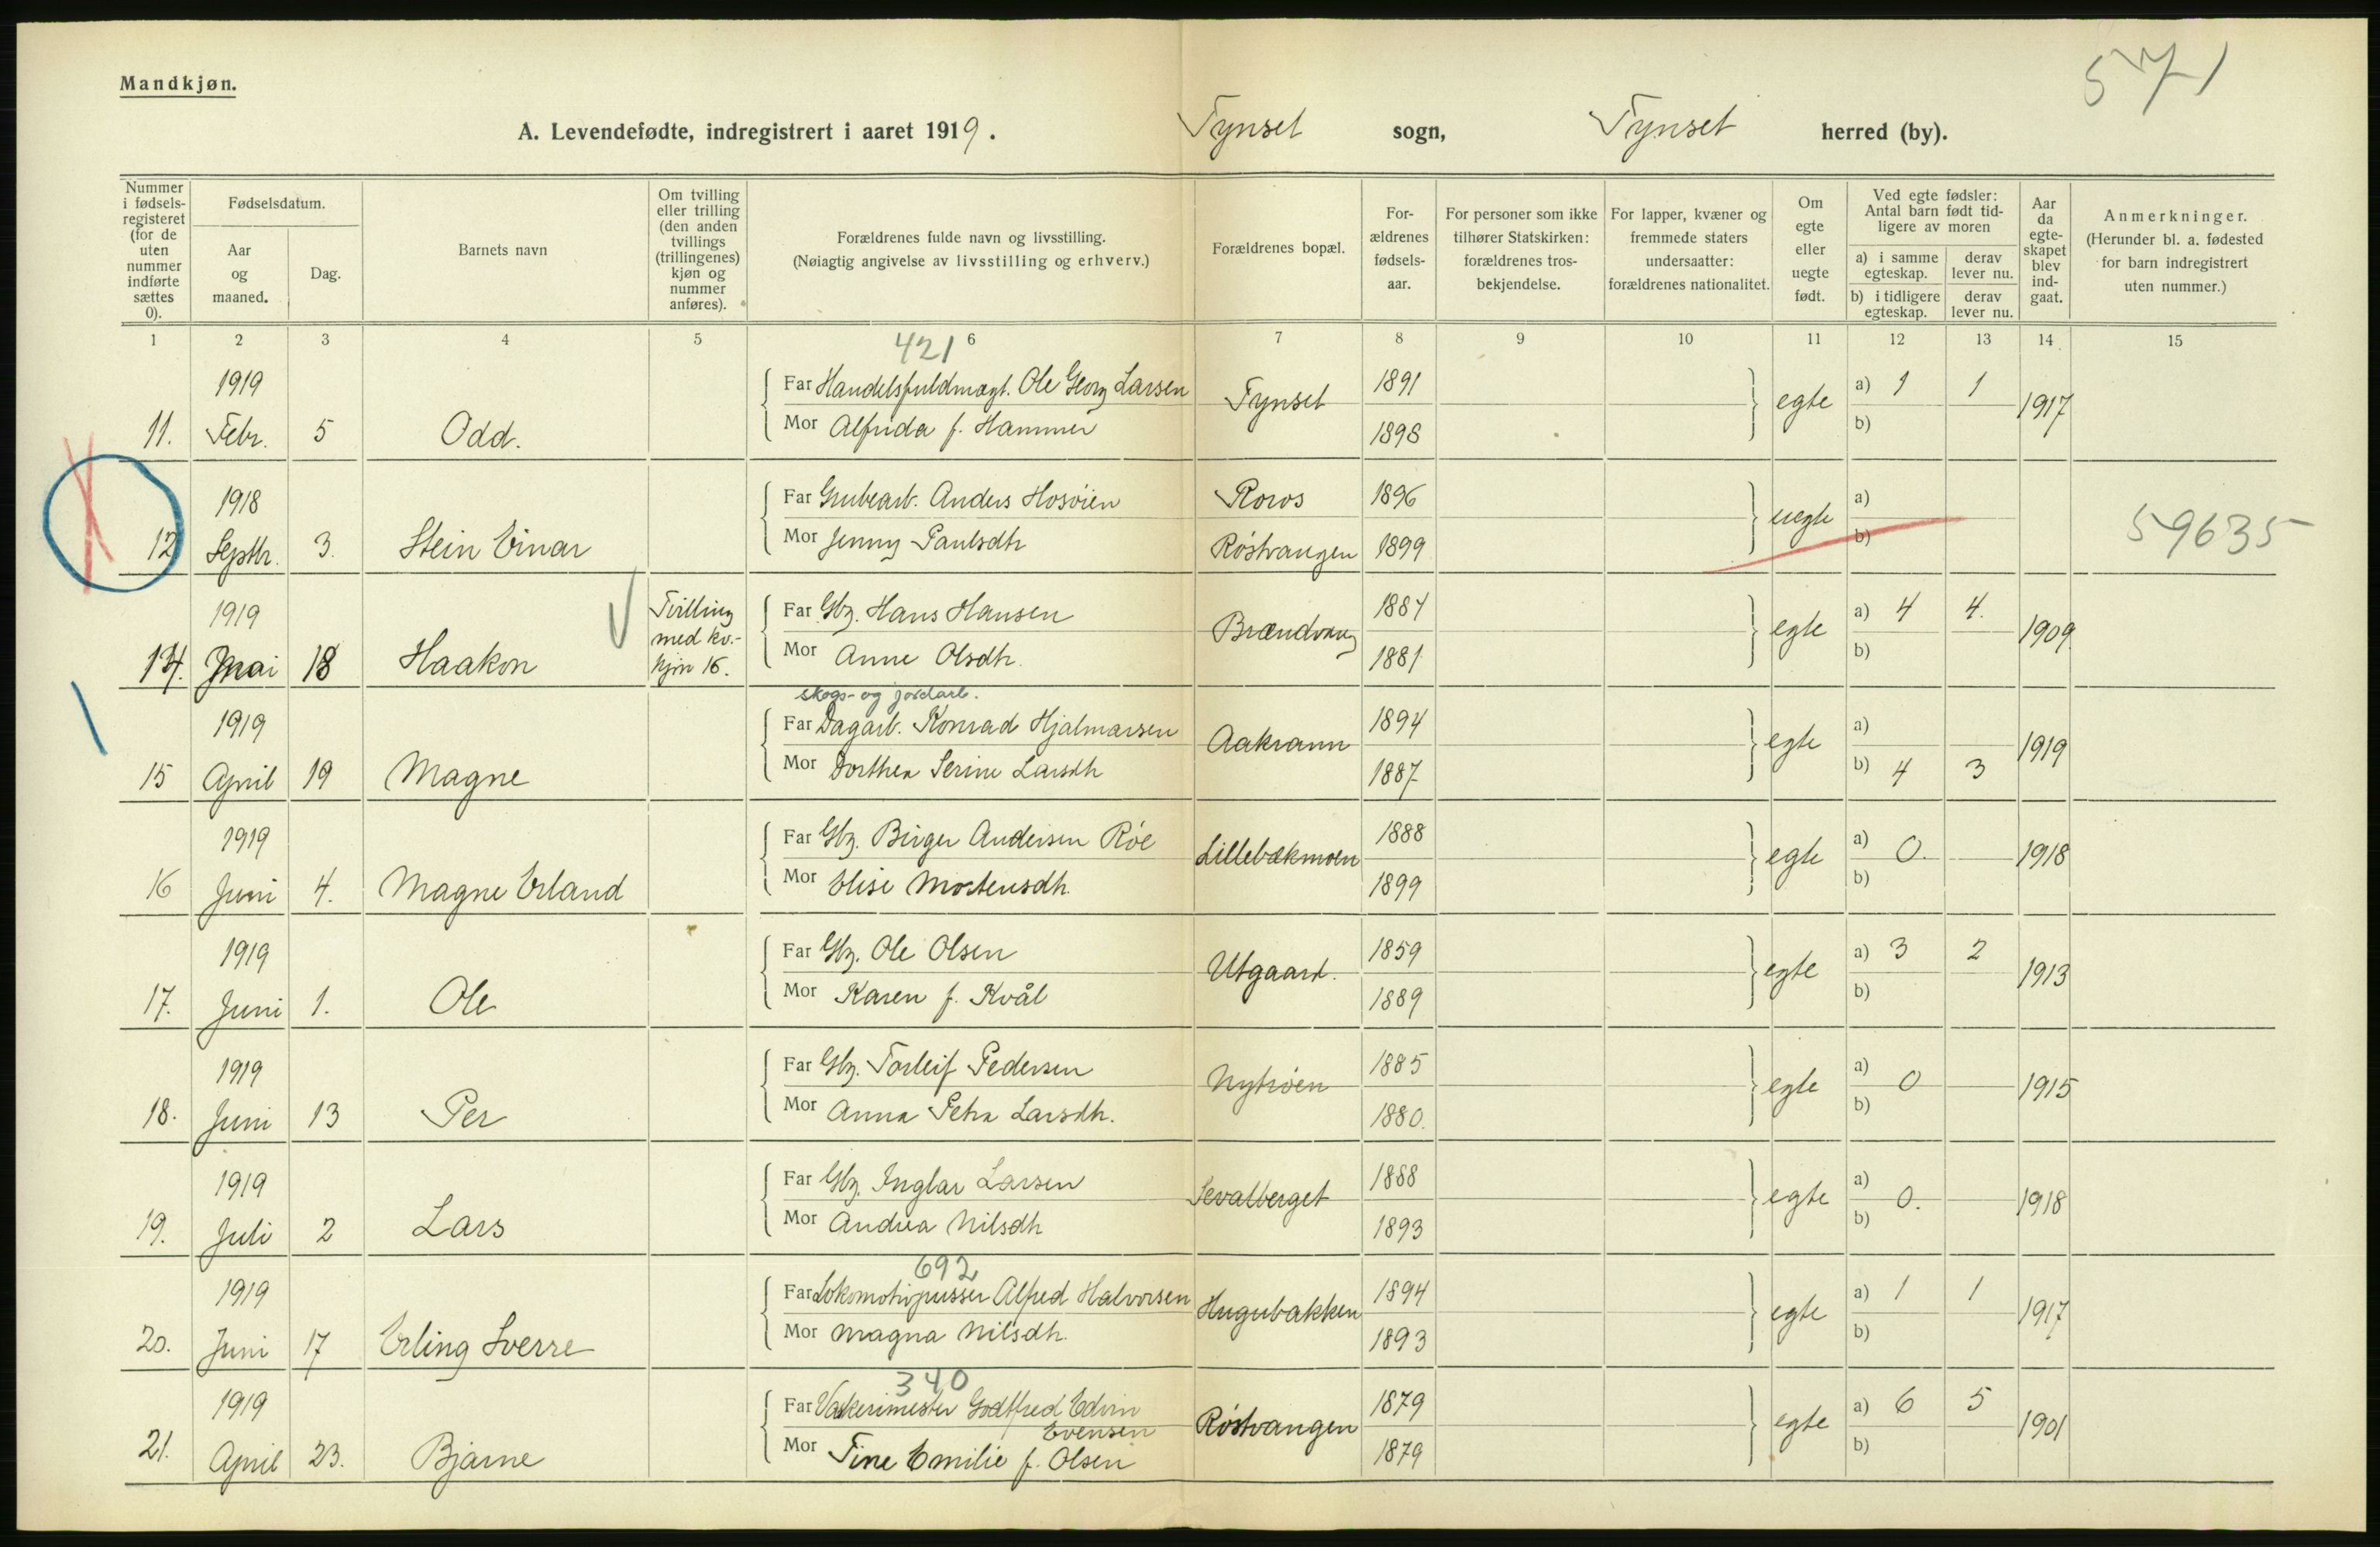 Mandkjøn.
571
A. Levendefødte, indregistrert i aaret 1919. Tynset sogn, Tynset herred (by).
Nummer i fødselsregisteret (for de uten nummer indførte sættes 0).
Fødselsdatum.
Aar og maaned.
Dag.
Barnets navn
Om tvilling eller trilling (den anden tvillings (trillingenes) kjøn og nummer anføres).
Forældrenes fulde navn og livsstilling.
(Nøiagtig angivelse av livsstilling og erhverv.)
Forældrenes bopæl.
Forældrenes fødselsaar.
For personer som ikke tilhører Statskirken: forældrenes trosbekjendelse.
For lapper, kvæner og fremmede staters undersaatter: forældrenes nationalitet.
Om egte eller uegte født.
Ved egte fødsler: Antal barn født tidligere av moren
a) i samme egteskap. derav lever nu.
b) i tidligere egteskap. derav lever nu.
Aar da egteskapet blev indgaat.
Anmerkninger.
(Herunder bl. a. fødested for barn indregistrert uten nummer.)
1 2 3 4 5 6 7 8 9 10 11 12 13 14 15
421
1919 Far Handelsfuldmægt. Ole Georg Larsen Tynset 1891 egte a) 1 1 1917
11. Febr. 5 Odd. Mor Alfrida f. Hammer 1898 b)
1918 Far Grubearb. Anders Hosøien Røros 1896 uegte a)
12 Septbr. 3. Stein Einar Mor Jenny Paulsdh Røstvangen 1899 b) 59635
1919 Tvilling med kv.- kjøn 16. Far Gbr. Hans Hansen Brændvang 1884 egte a) 4 4. 1909
14. Mai 18 Haakon Mor Anne Olsdh. 1881 b)
skogs- og jordarb.
1919 Far Dagarb. Konrad Hjalmarsen Aakrann 1894 egte a) 1919
15 April 19 Magne Mor Dorthea Serine Larsdh 1887 b) 4 3
1919 Far Gbr. Birger Andersen Röe Lillebækmoen 1888 egte a) 0. 1918
16 Juni 4. Magne Erland Mor Elise Mortensdh. 1899 b)
1919 Far Gbr. Ole Olsen Utgaard. 1859 egte a) 3 2 1913
17. Juni 1. Ole Mor Karen f. Kvål 1889 b)
1919 Far Gbr. Torleif Pedersen Nytrøen 1885 egte a) 0 1915
18. Juni 13 Per Mor Anna Petra Larsdh. 1880. b)
1919 Far Gbr. Inglar Larsen Sevalberget 1888 egte a) 0. 1918
19. Juli 2 Lars Mor Andrea Nilsdh 1893 b)
692
1919 Far Lokomotivpusser Alfred Halvorsen Hugubakken 1894 egte a) 1 1 1917
20. Juni 17 Erling Sverre Mor Magna Nilsdh. 1893 b)
340
1919 Far Vaskerimester Godtfred Edvin Evensen Røstvangen 1879 egte a) 6 5 1901
21. April 23. Bjarne Mor Tine Emilie f. Olsen 1879 b)